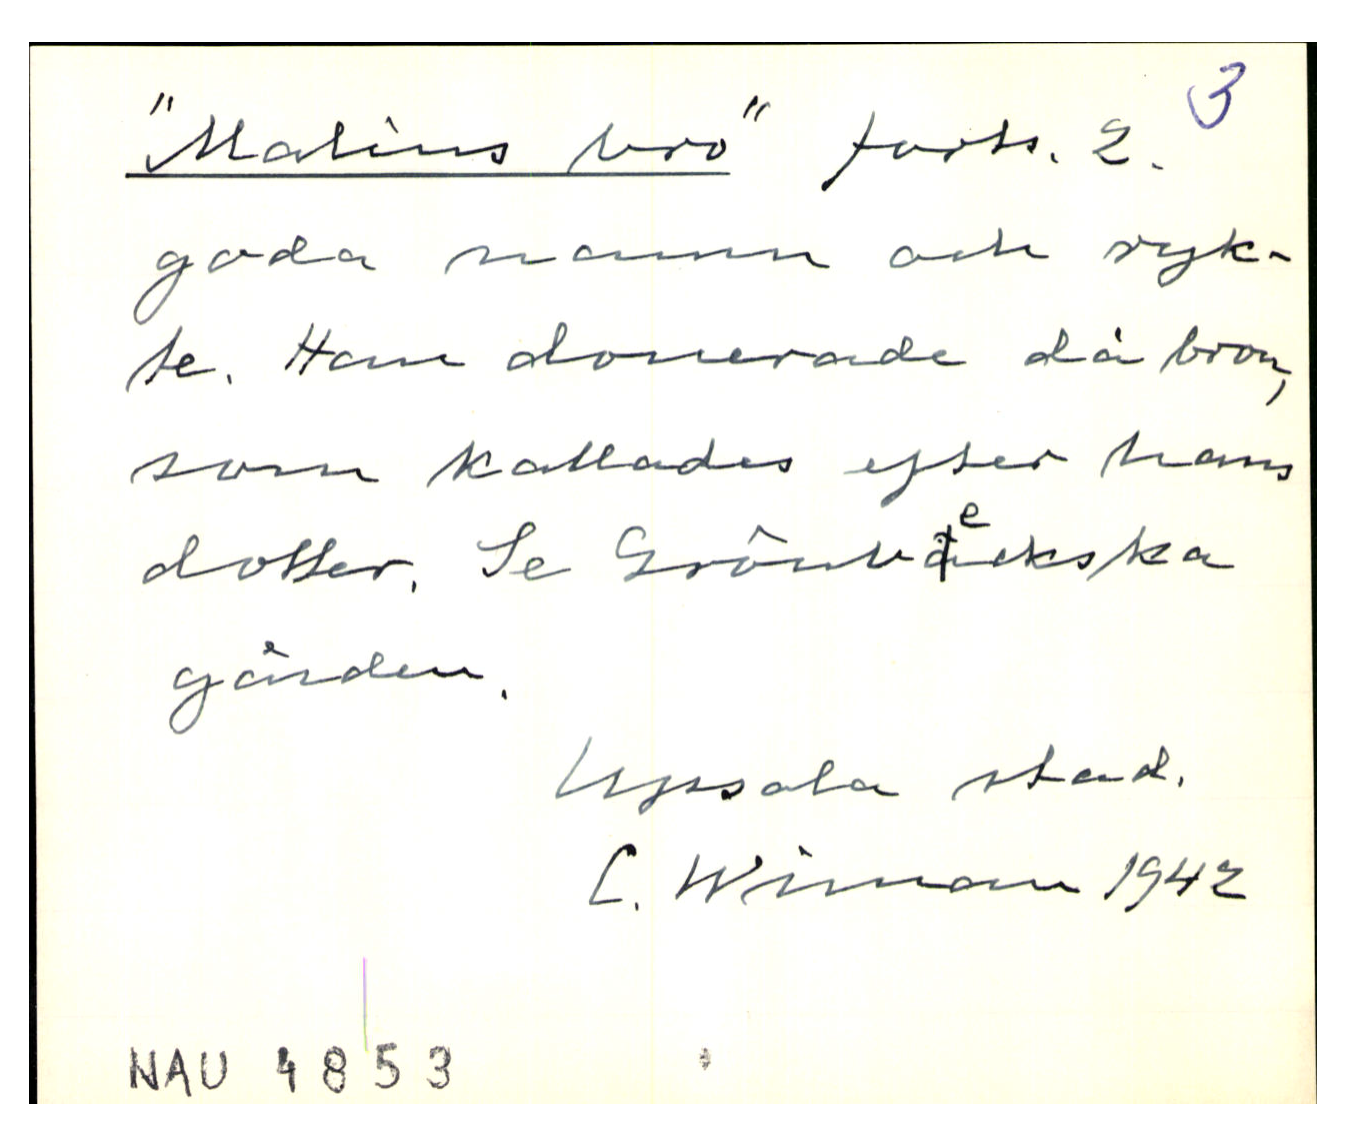 "Malins bro" forts. 2. 3
goda namn och ryk-
te. Han donerade då bron,
som kallades efter hans
dotter. Se Grönbeckska
gården.
Upsala stad.
C. Wiman 1942
NAU 4853